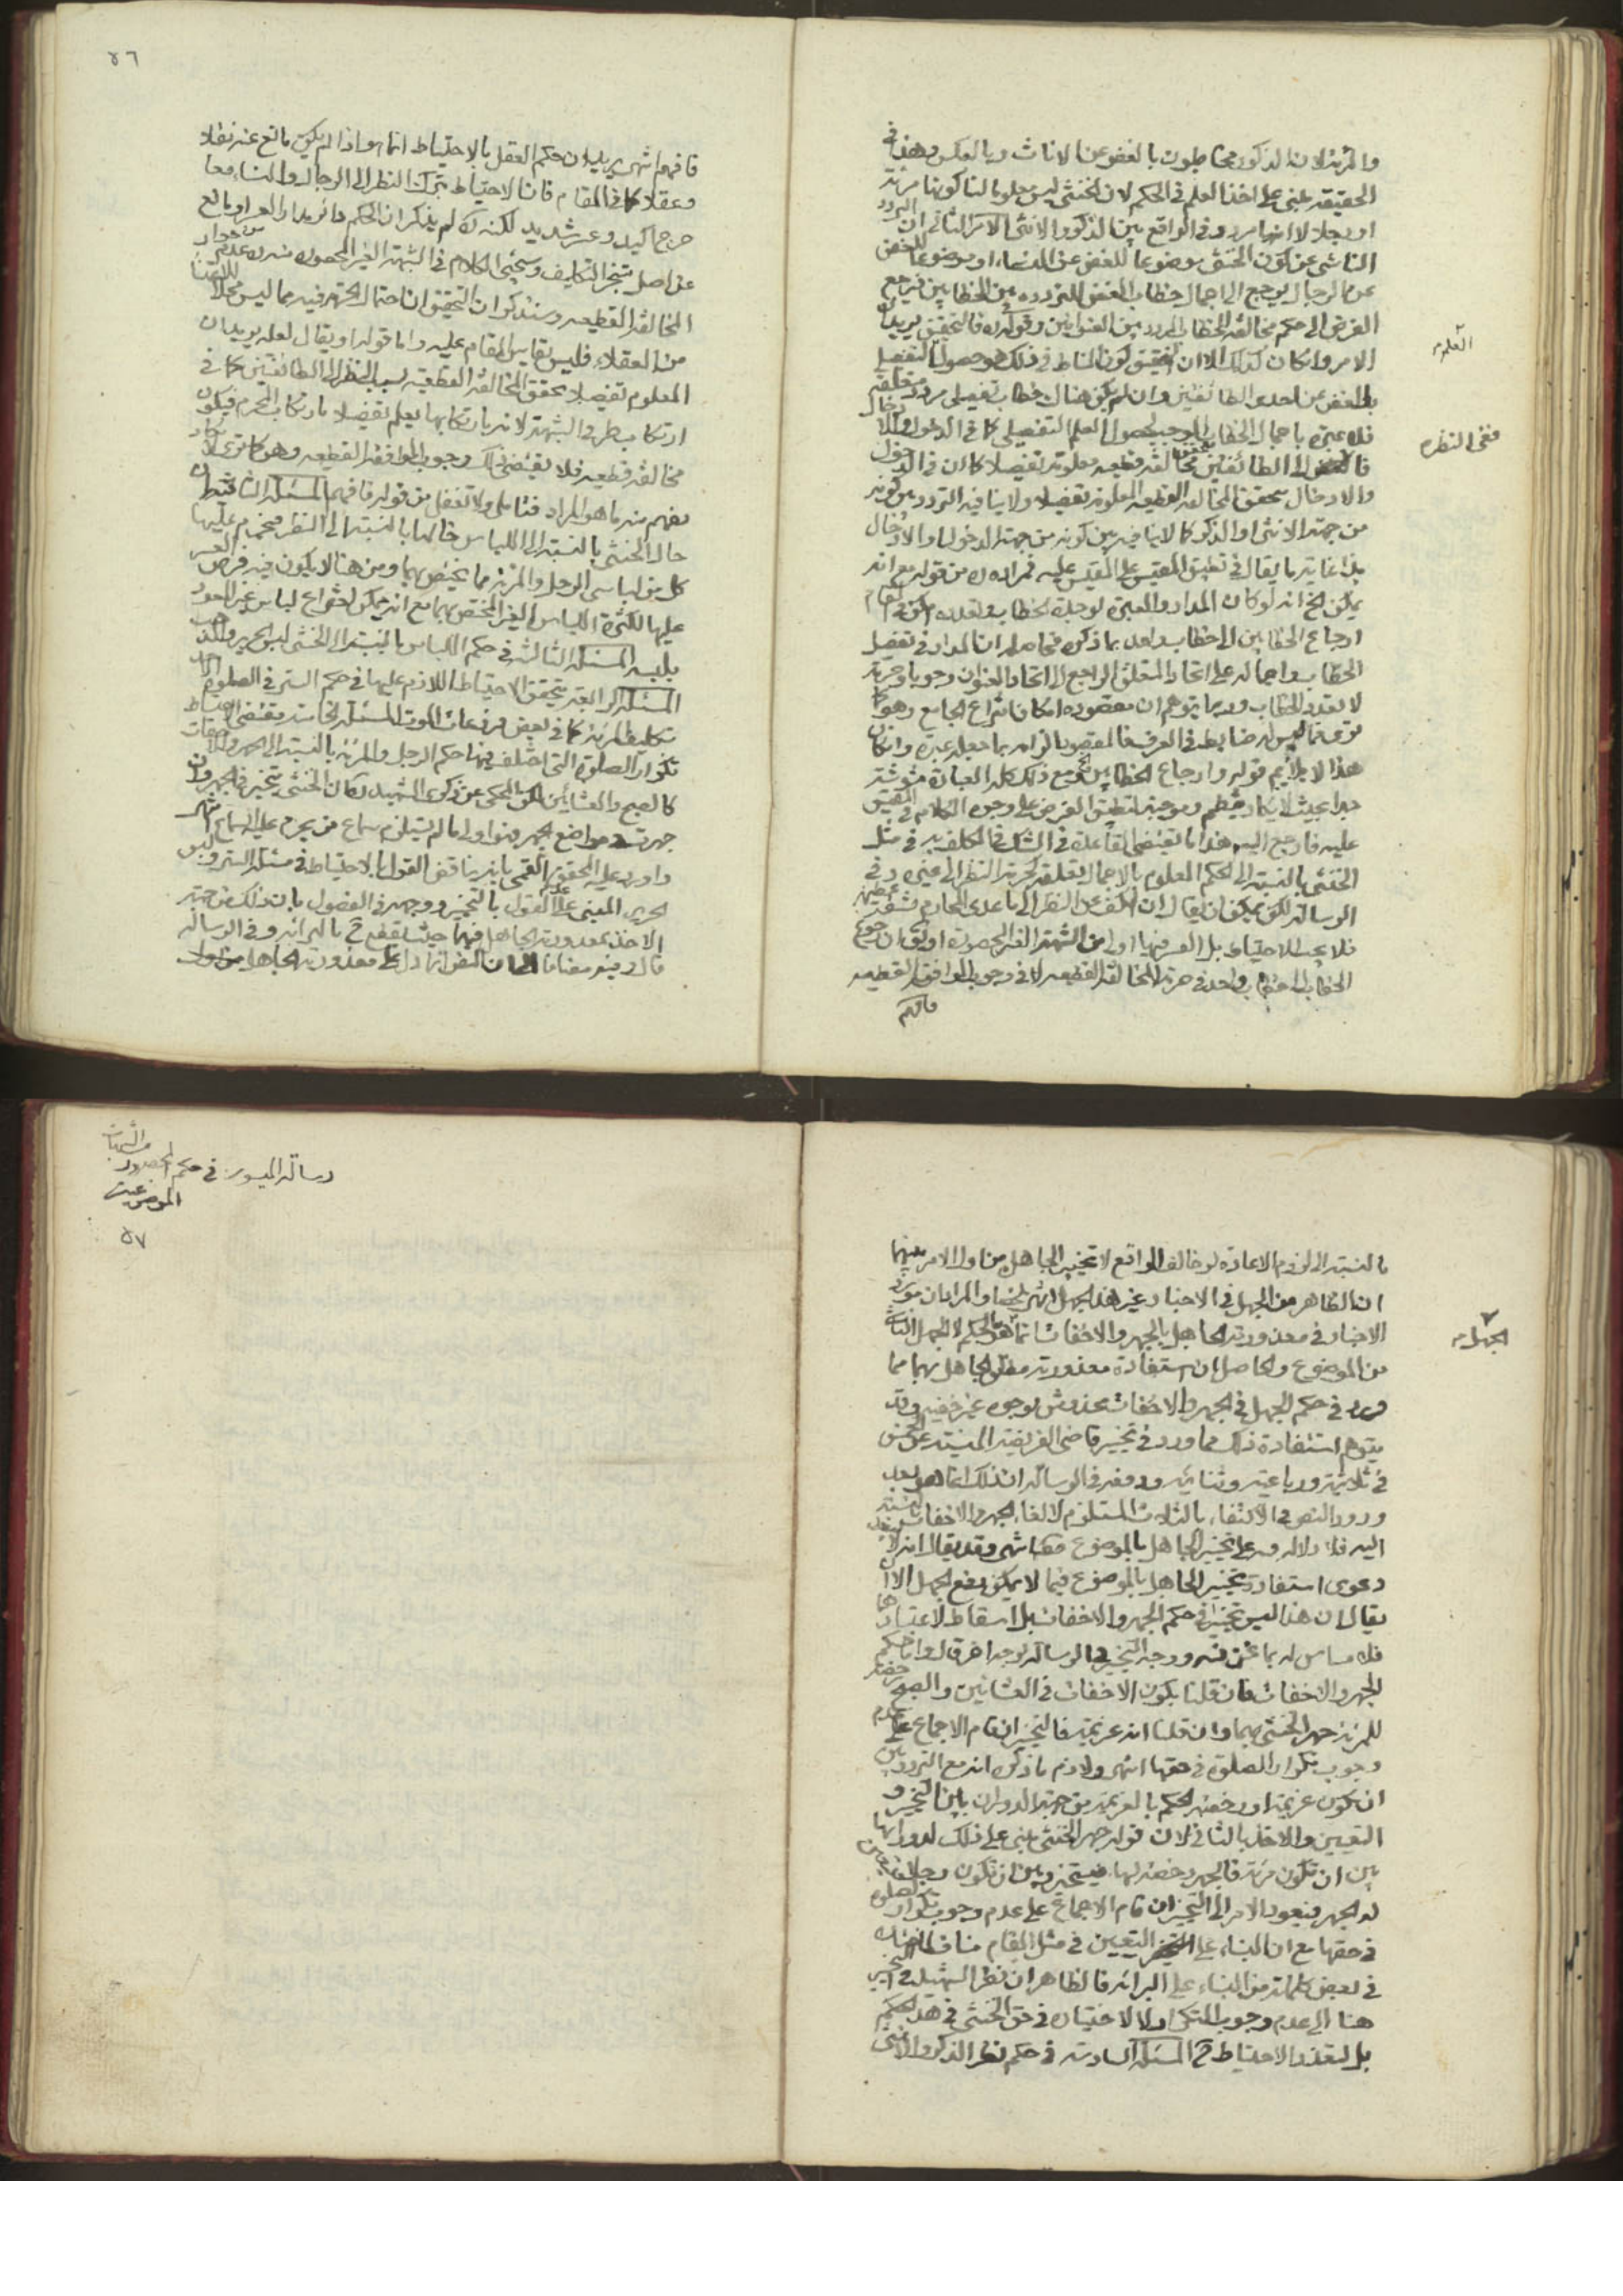 والمرئة لان الذكور مخاطبون بالغض عن الاناث وبالعكس وهذا في
الحقيقة مبنى على اخذ العلم في الحكم لان الخنثى ليس معلوما لنا كونها مرئة
او رجلا لا انها مردد في الواقع بين الذكور والانثى الامر الثانى ان التردد
الناشى عن كون الخنثى موضوعا للغض عن النساء او موضوعا للغض
عن الرجال يرجع الى اجمال خطاب الغض للتردد بين الخطابين فيرجع
الفرض الى حكم مخالفة الخطاب المردد بين العنوانين وقوله فالتحقيق يريد ان
الامر وان كان كذلك الا ان التحقيق كون المناط في ذلك هو حصول التفصيلى
العلم
بالغض عن احدى الطائفتين وان لم يكن هناك خطاب تفصيلى مردد متعلقه
فلا عبرة باجمال الخطاب الموجب لحصول العلم التفصيلى كما في الدخول والادخال
ففى النظر
الى الطائفتين تحقق مخالفة قطعيه معلومة تفصيلا كما ان في الدخول
والادخال يتحقق المخالفه القطعيه المعلومة تفصيلا ولا ينافيه التردد بين كونه
من جهة الانثى او الذكر كما لا ينافيه بين كونه من جهة الدخول او الادخال
هذا غاية ما يقال في تطبيق المقيس على المقيس عليه فمراده من قوله مع انه
يمكن الخ انه لو كان المدار والعبرة لوحدة الخطاب وتعدده امكن في المقام
ارجاع الخطابين الى خطاب واحد بما ذكره فحاصله ان المدار في تفصيل
الخطاب واجماله على اتحاد المتعلق الراجع الى اتحاد العنوان وجوبا وحرمة
لا تعدد الخطاب وربما يتوهم ان مقصوده امكان انتزاع الجامع وهو كما
ترى فما ليس له ضابطه في العرف فالمقصود الزام بما جعله عبرة وان كان
هذا لا يلايم قوله وارجاع الخطابين ومع ذلك كله العبارة مشوشة
جدا بحيث لا يكاد ينتظم وموجبة لتطبيق الغرض على وجوه الكلام في المقيس
عليه فارجع اليه هذا ما يقتضى القاعدة في الشك في المكلف به في مثل
الخنثى بالنسبة الى الحكم المعلوم بالاجمال تعلقه كحرمة النظر الى غيره وفي
الرسالة لكن يمكن ان يقال ان الكف عن النظر الى ما عدى المحارم مشقة عظيمة
فلا يجب الاحتياط بل العسر فيها اولى من الشبهة الغير المحصورة او يق ان رجوع
الخطابين الى خطاب واحد في حرمة المخالفة القطعيه لا في وجوب الموافقة القطعيه
فافهم
٥٦
فافهم انتهى يريد ان حكم العقل بالاحتياط انما هو اذا لم يكن مانع عنه نقلا
وعقلا كما في المقام فان الاحتياط بترك النظر الى الرجال والنساء معا
حرج اكيد وعسر شديد لكنه لم يذكر ان الحكم دائر مدار العسر او مانع
عن اصل تنجز التكليف وسيجئ الكلام في الشبهة الغير المحصورة من عدم جواز
المخالفة القطعيه وسنذكر ان التحقيق ان احتمال الحرمة فيه مما ليس محلا للاعتناء
من العقلاء فليس يقايس المقام عليه واما قوله او يقال لعله يريد ان
المعلوم تفصيلا تحقق المخالفة القطعية بسبب النظر الى الطائفتين كما في
ارتكاب طرفى الشبهة لانه بارتكابها يعلم تفصيلا بارتكاب المحرم فيكون
مخالفة قطعيه فلا يقتضى ذلك وجوب الموافقة القطعيه وهو كما ترى لا يكاد
يفهم منه ما هو المراد فتامل ولا تغفل من قوله فافهم المسئلة الثانية ان
حال الخنثى بالنسبة الى اللباس حالها بالنسبة الى النظر فيحرم عليها
كل من لباسى الرجل والمرئة مما يختص بهما ومن هنا لا يكون فيه فرض العسر
عليها لكثرة اللباس الغير المختص بهما مع انه يمكن اختراع لباس غير المعهود
يلبسه المسئلة الثالثة في حكم اللباس بالنسبة الى الخنثى لبس الحرير والذهب
المسئلة الرابعة يتحقق الاحتياط اللازم عليها في حكم الستر في الصلوة باخذ
تكليف المرئة كما في بعض فرعات الموت المسئلة الخامسة يقتضى الاحتياط
تكرار الصلوة التى اختلف فيها حكم الرجل والمرئة بالنسبة الى الجهر والاخفات
كالصبح والعشائين لكن المحكى عن ذكرى الشهيد ان الخنثى يتخير في الجهر وان
جهرت في مواضع الجهر فهو اولى ما لم يستلزم سماع من يحرم عليه السماع انتهى
واورد عليه المحقق القمى بانه يناقض القول بالاحتياط في مسئلة الستر ولبس
الحرير المبنى على القول بالتخيير ووجهه في الفصول بان ذلك من جهة
الاخذ بمعذورية الجاهل فيهما حيث يقطع بالبرائه وفي الرسالة
قال وفيه مضافا الى ان النص انما دل على معذورية الجاهل من اول
بالنسبة الى لزوم الاعادة لو خالف الواقع لا تخيير الجاهل من اول الامر بينهما
ان الظاهر من الجهل في الاخبار غير هذا الجهل انتهى والمراد ان مورد
الاخبار في معذورية الجاهل بالجهر والاخفات انما هو الجهل بالحكم لا الجهل الناشئ
الجهل
من الموضوع والحاصل ان استفادة معذورية مطلق الجاهل بهما مما
ورد في حكم الجهل في الجهر والاخفات مخدوش بوجوه غير خفيه وقد
يتوهم استفادة ذلك مما ورد في تخيير قاضى الفريضة المنسية عن الخمس
في ثلاثية ورباعية وثنائيه ودفعه في الرسالة ان ذلك انما هو بعد
ورود النص في الاكتفاء بالثلاث المستلزم لالغاء الجهر والاخفات بالنسبة
اليه فلا دلالة فيه على تخيير الجاهل بالموضوع مطلقا انتهى وقد يقال انه لا
دعوى استفادة تخيير الجاهل بالموضوع فيما لا يمكن رفع الجهل الا ان
يقال ان هذا ليس تخييرا في حكم الجهر والاخفات بل اسقاط لاعتبارهما
فلا مساس له بما نحن فيه ووجه التخيير في الرسالة بوجه اخر قال واما حكم
الجهر والاخفات فان قلنا بكون الاخفات في العشائين والصبح رخصة
للمرئة جهر الخنثى بهما وان قلنا انه عزيمة فالتخيير ان قام الاجماع على عدم
وجوب تكرار الصلوة في حقها انتهى ولازم ما ذكره انه مع التردد بين
ان يكون عزيمة او رخصة الحكم بالعزيمة من جهة الدوران بين التخيير و
التعيين والاخذ بالثانى لان قوله جهر الخنثى مبنى على ذلك لدورانها
بين ان تكون مرئة فالجهر رخصة لها فيتخير وبين ان تكون رجلا فيتعين
له الجهر فيعود الامر الى التخيير ان قام الاجماع على عدم وجوب تكرار الصلوة
في حقها مع ان البناء على التعيين في مثل المقام مناف لما هناك
في بعض كلماته من البناء على البرائه فالظاهر ان نظر الشهيد في التخيير
هنا الى عدم وجوب التكرار لا الاختيار في حق الخنثى في هذا الحكم
بل لتعذر الاحتياط المسئلة السادسة في حكم نظر الذكر والانثى
رسالة الميسور في حكم المحصور من الشبهات
الموضوعية
٥٧